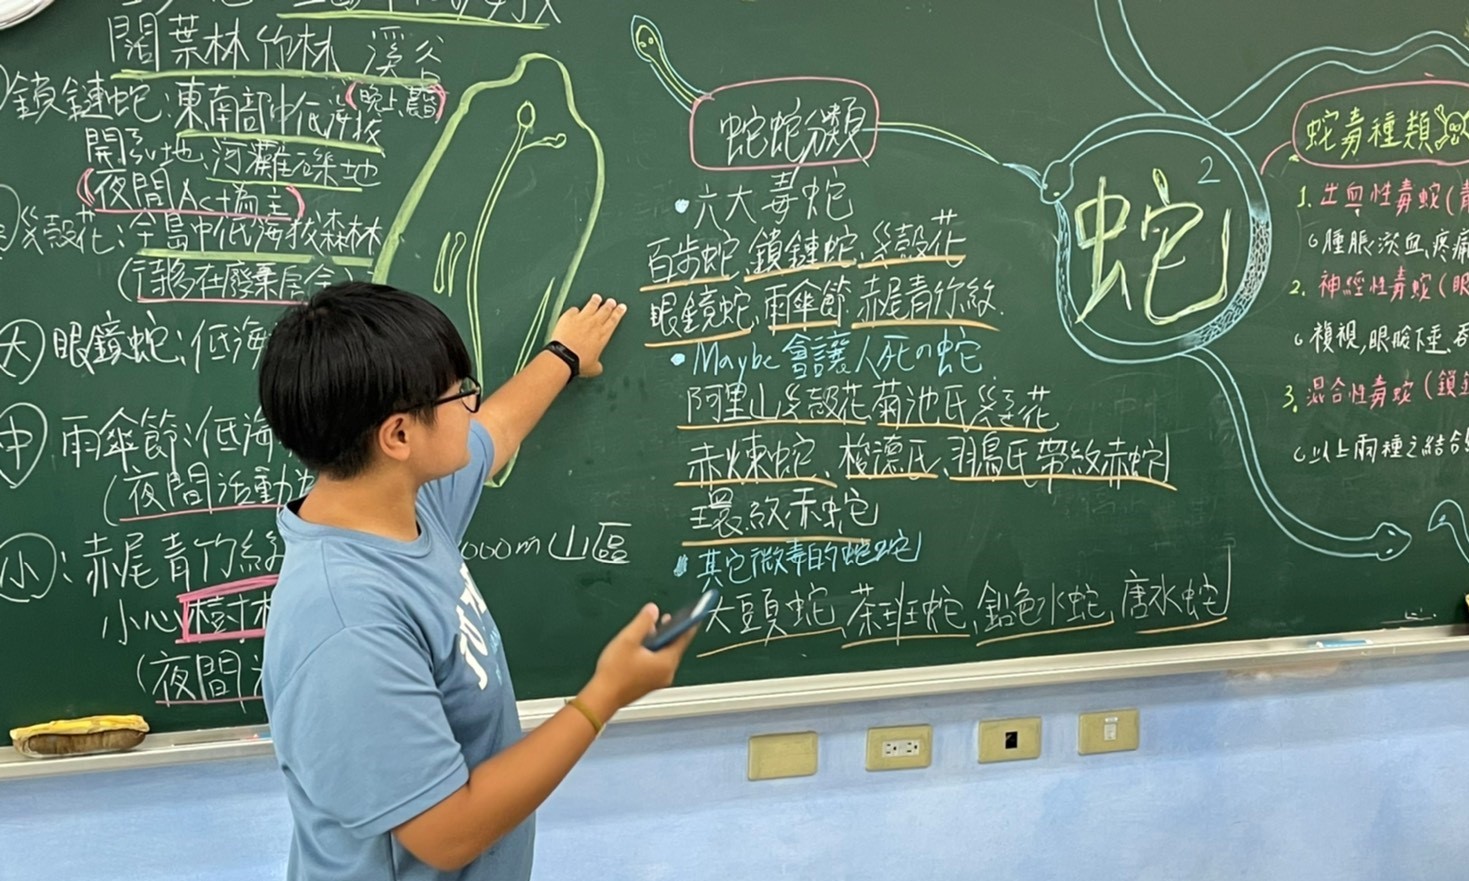 闊葉林 竹林 溪谷
鎖鏈蛇:東南部中低海拔
(晚上、晨昏)
開墾地、河灘礫地
(夜間
龜殼花:全島中低海拔森林
(時移在廢棄居舍)
大 眼鏡蛇:低海
中 雨傘節:低海
(夜間活動
小:赤尾青竹絲
000m山區
小心樹林
(夜間
蛇蛇分類
•六大毒蛇
百步蛇、鎖鏈蛇、龜殼花
眼鏡蛇、雨傘節、赤尾青竹絲.
•Maybe會讓人死の蛇
阿里山龜殼花、菊池氏龜殼花
赤煉蛇、梭德氏、羽鳥氏帶紋赤蛇
環紋赤蛇
•其它微毒的蛇蛇
大頭蛇、茶斑蛇、鉛色水蛇、唐水蛇
蛇2
蛇毒種類
1. 出血性毒蛇(
腫脹、淤血、疼痛
2. 神經性毒蛇(眼
複視,眼瞼下垂、吞
3. 混合性毒蛇(鎖鏈
以上兩種之結合